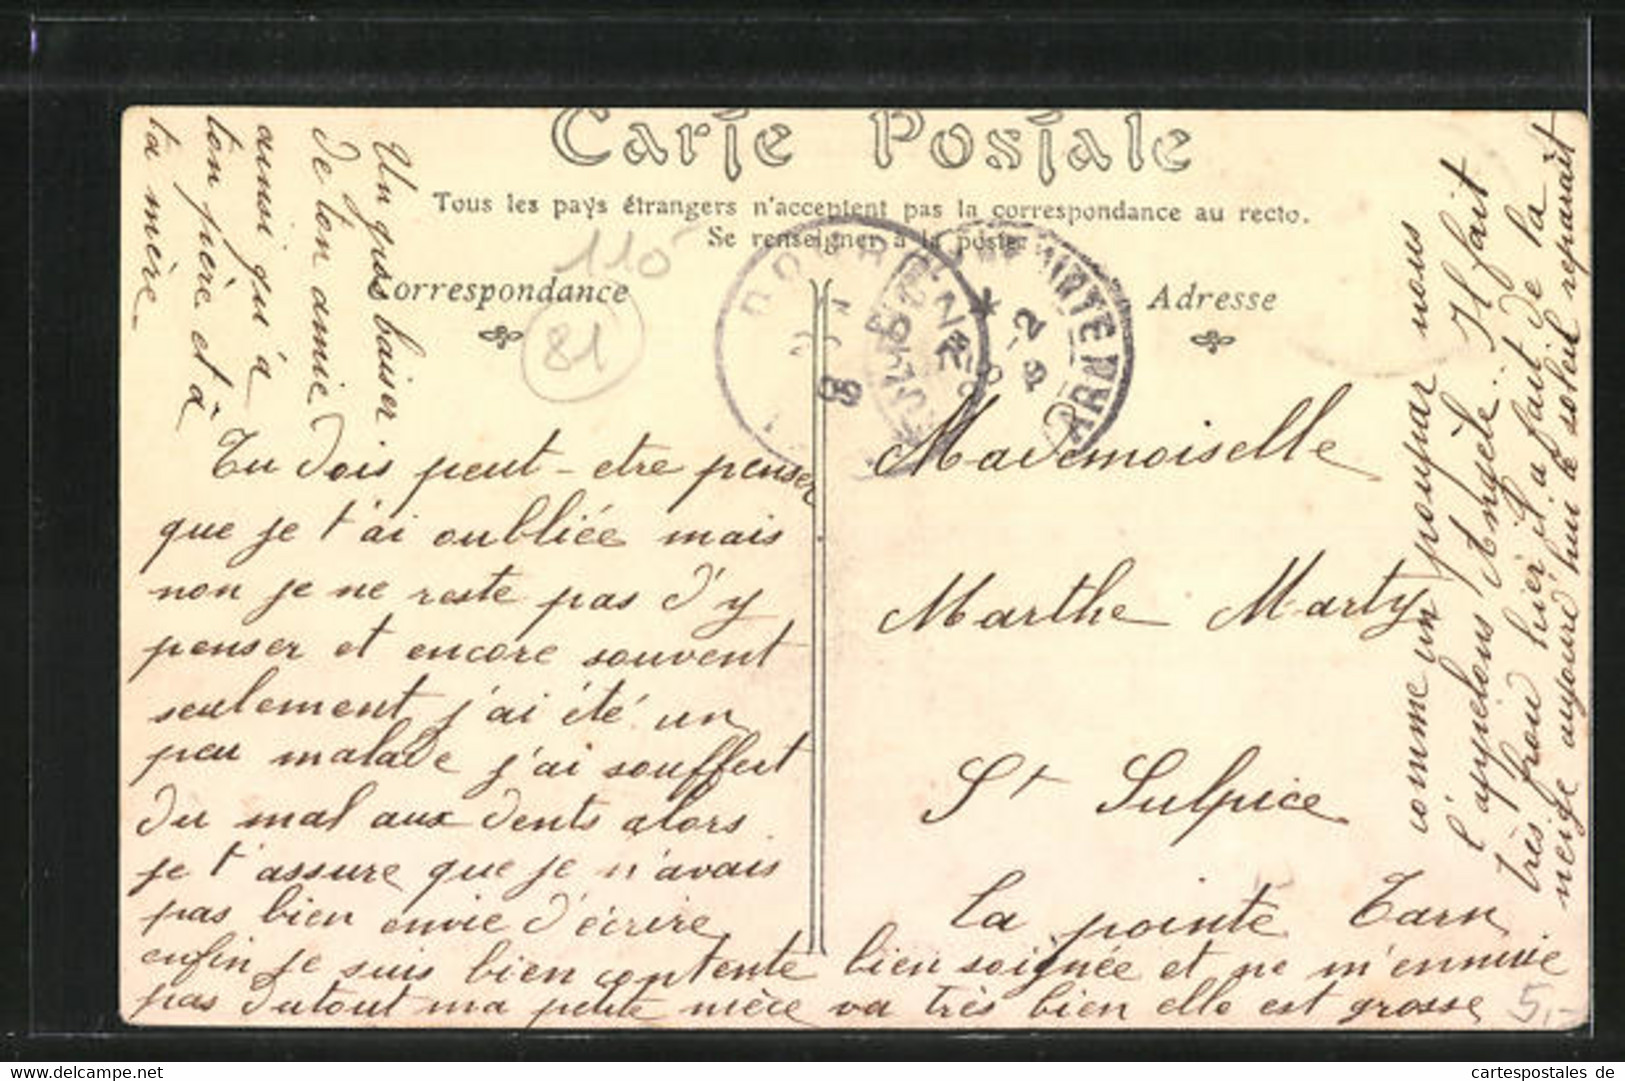 Carte Postale
Tous les pays étrangers n'acceptent pas la correspondance au recto.
Se renseigner à la poste.
Correspondance
Adresse
110
81
Tu dois peut-etre penser
que je t'ai oubliée mais
non je ne reste pas d'y
penser et encore souvent
seulement j'ai été un
peu malade j'ai souffert
du mal aux dents alors
je t'assure que je n'avais
pas bien envie d'écrire
enfin je suis bien contente bien soignée et ne m'ennuie
pas dutout ma petite nièce va très bien elle est grosse
comme un poupar nous
l'appelons Angèle. Il fait
très froid hier il a fait de la
neige aujourd'hui le soleil reparait
Un gros baiser
de ton amie
ainsi qu'à
ton père et à
ta mère
Mademoiselle
Marthe Marty
St Sulpice
La pointe Tarn
5,-
cartespostales de